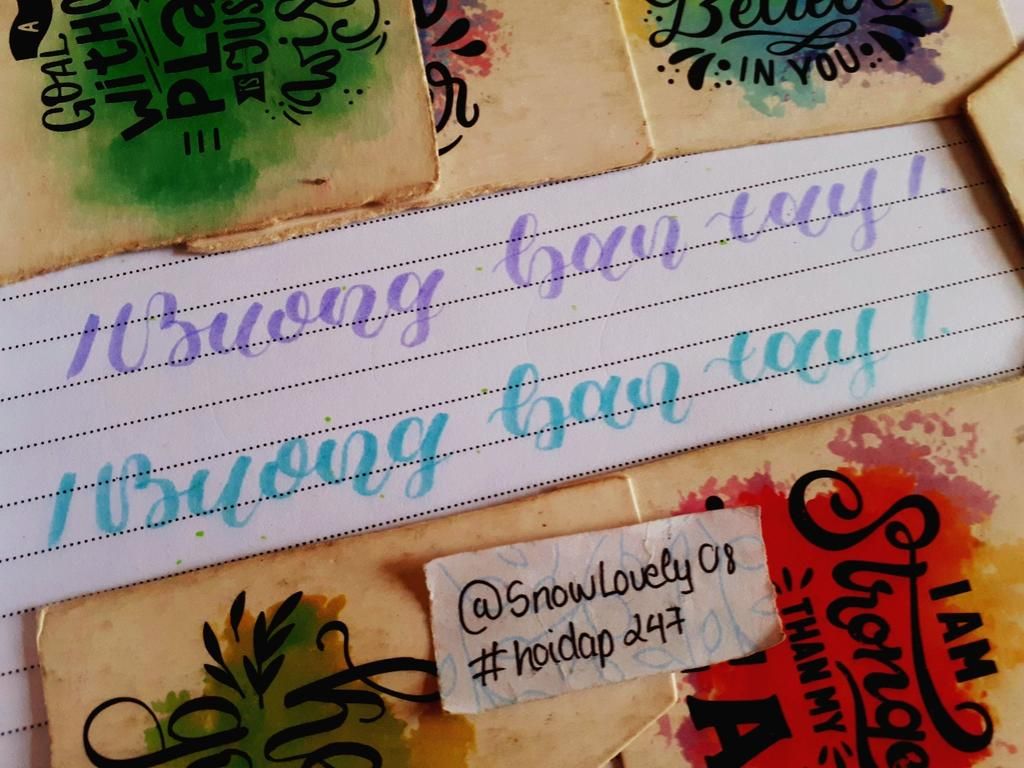 A
GOAL
WITHO
Pla
IS JUS
Wis
r
Believe
IN YOU
/Buong ban tay!.
/Buong ban tay!.
@SnowLovely08
#hoidap247
I AM
Stronge
THAN MY
A